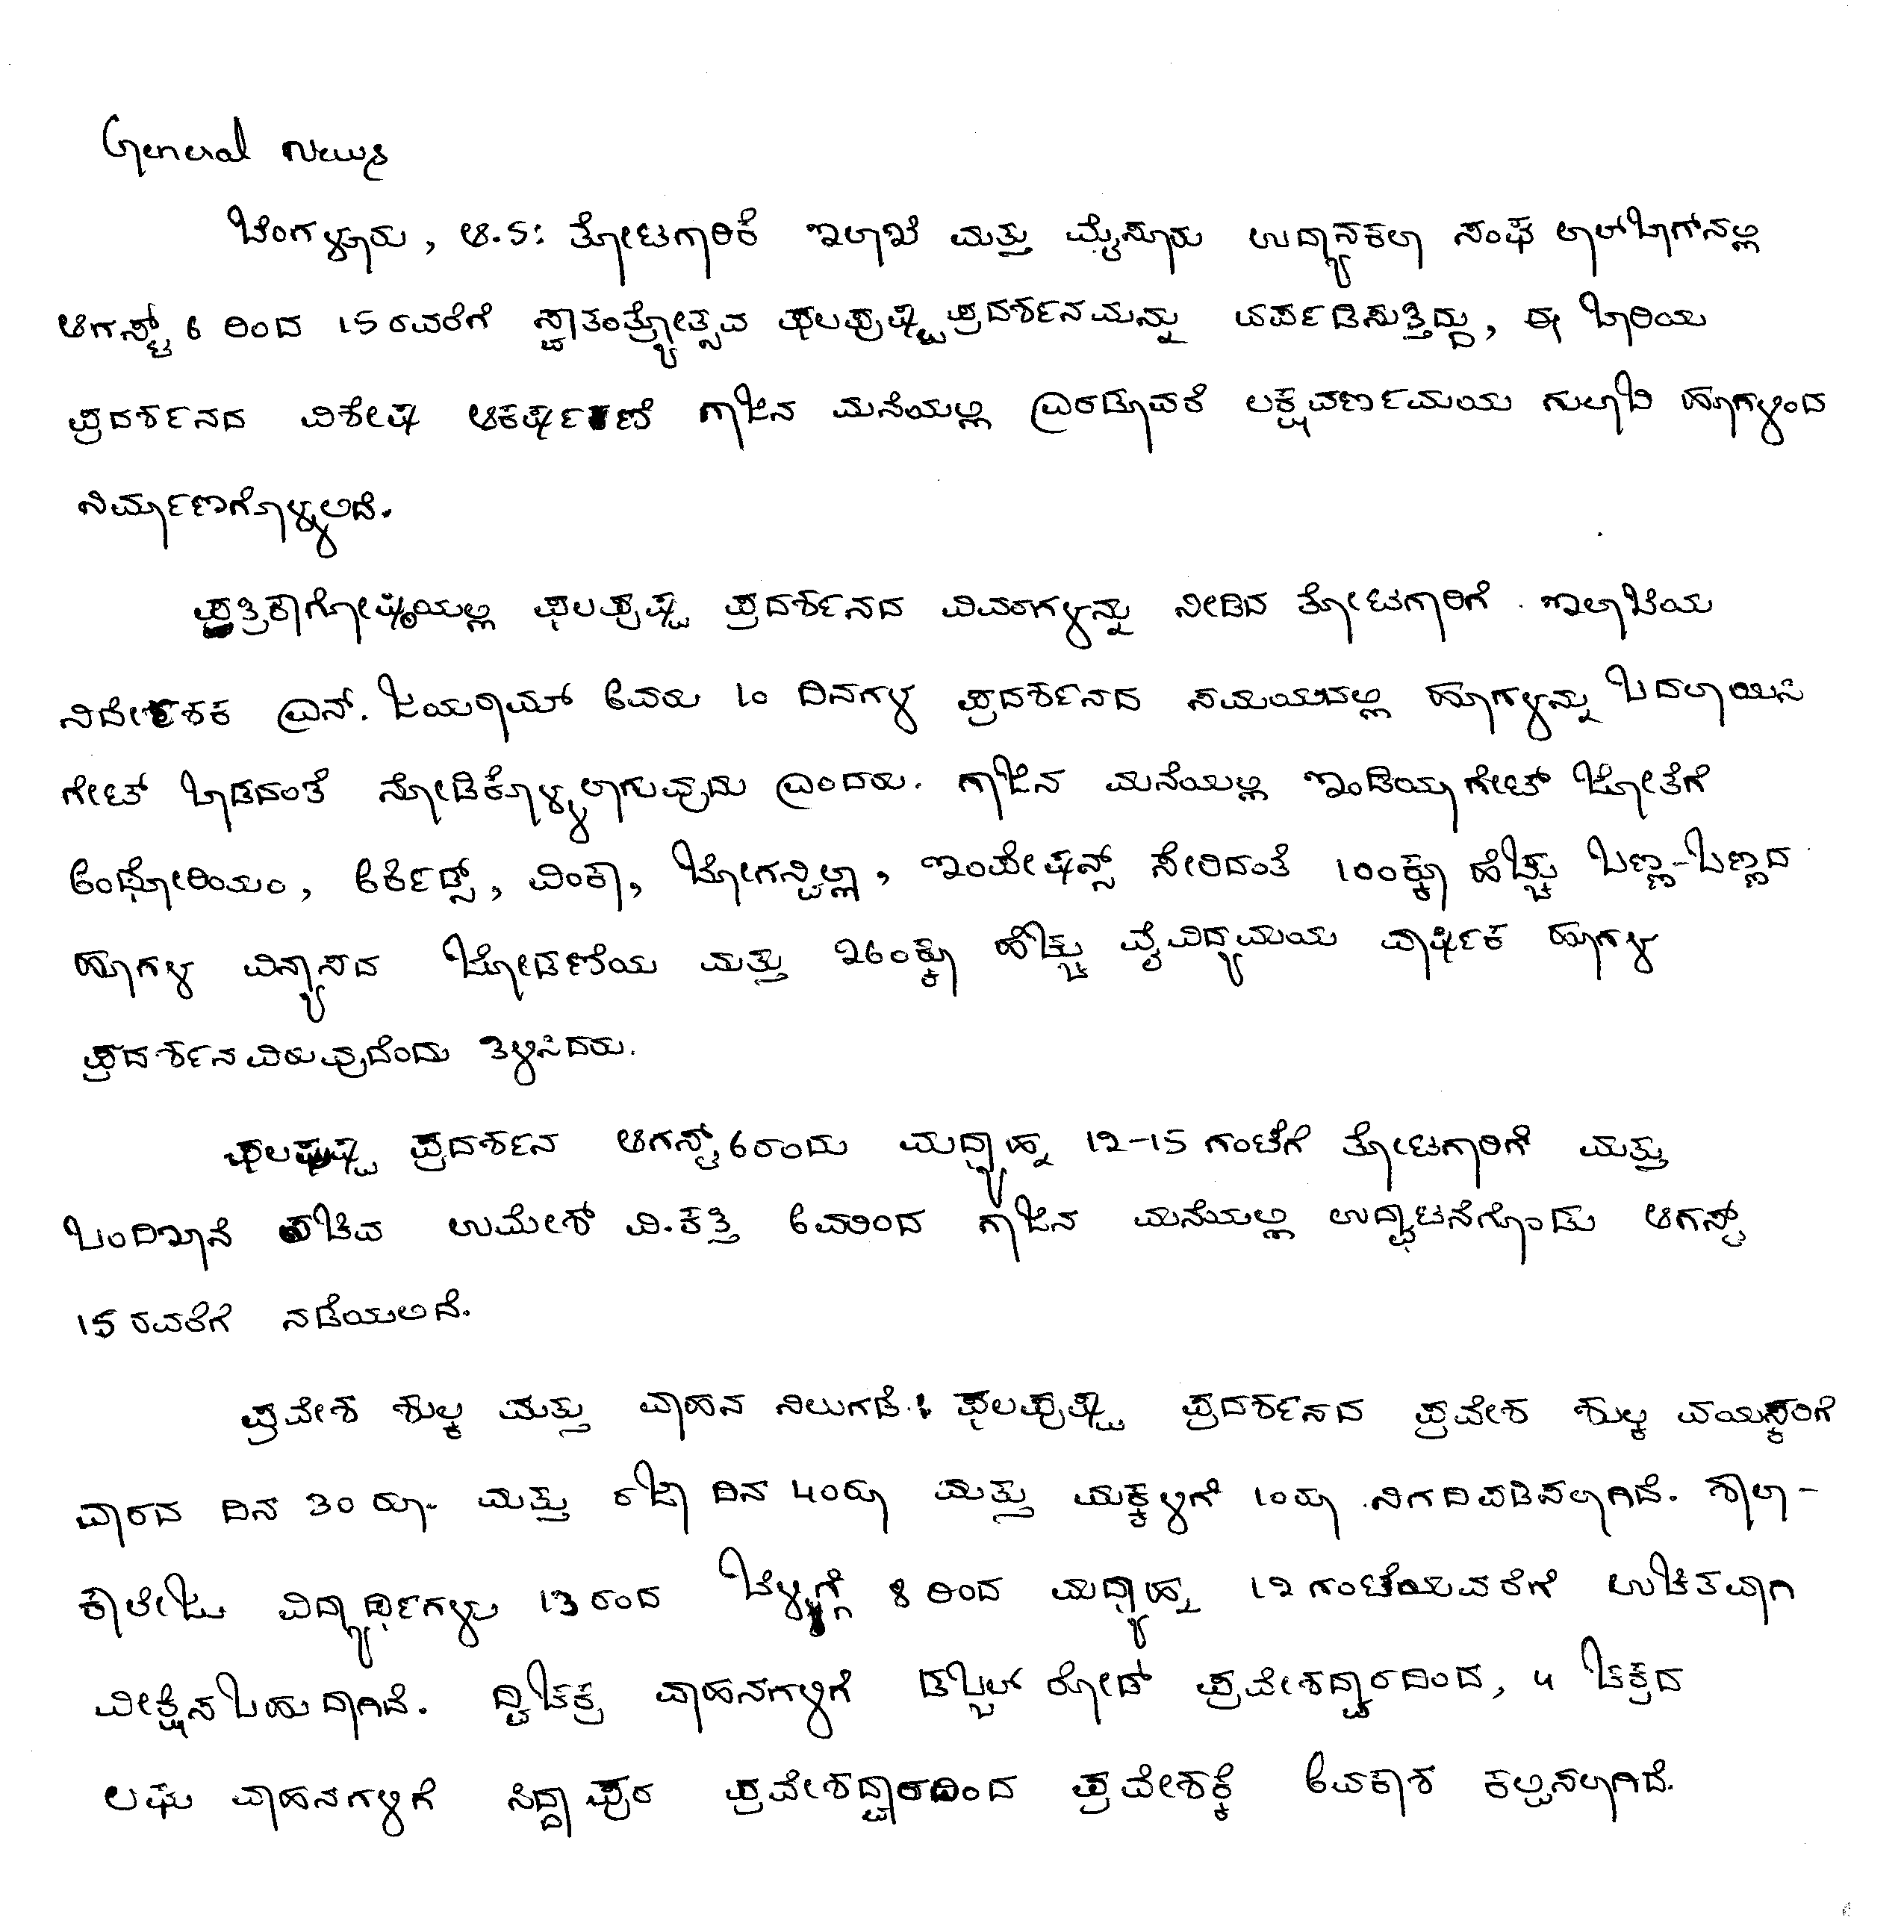 General News
ಬೆಂಗಳೂರು, ಆ.5: ತೋಟಗಾರಿಕೆ ಇಲಾಖೆ ಮತ್ತು ಮೈಸೂರು ಉದ್ಯಾನಕಲಾ ಸಂಘ ಲಾಲ್‌ಬಾಗ್‌ನಲ್ಲಿ
ಆಗಸ್ಟ್ 6 ರಿಂದ 15 ರವರೆಗೆ ಸ್ವಾತಂತ್ರ್ಯೋತ್ಸವ ಫಲಪುಷ್ಪ ಪ್ರದರ್ಶನವನ್ನು ಏರ್ಪಡಿಸುತ್ತಿದ್ದು, ಈ ಬಾರಿಯ
ಪ್ರದರ್ಶನದ ವಿಶೇಷ ಆಕರ್ಷಣೆ ಗಾಜಿನ ಮನೆಯಲ್ಲಿ ಎರಡೂವರೆ ಲಕ್ಷ ವರ್ಣಮಯ ಗುಲಾಬಿ ಹೂಗಳಿಂದ
ನಿರ್ಮಾಣಗೊಳ್ಳಲಿದೆ.
ಪತ್ರಿಕಾಗೋಷ್ಠಿಯಲ್ಲಿ ಫಲಪುಷ್ಪ ಪ್ರದರ್ಶನದ ವಿವರಗಳನ್ನು ನೀಡಿದ ತೋಟಗಾರಿಗೆ ಇಲಾಖೆಯ
ನಿರ್ದೇಶಕ ಎನ್. ಜಯರಾಮ್ ಅವರು 10 ದಿನಗಳ ಪ್ರದರ್ಶನದ ಸಮಯದಲ್ಲಿ ಹೂಗಳನ್ನು ಬದಲಾಯಿಸಿ
ಗೇಟ್ ಬಾಡದಂತೆ ನೋಡಿಕೊಳ್ಳಲಾಗುವುದು ಎಂದರು. ಗಾಜಿನ ಮನೆಯಲ್ಲಿ ಇಂಡಿಯಾಗೇಟ್ ಜೋತೆಗೆ
ಅಂಥೋರಿಯಂ, ಅರ್ಕಿಡ್ಸ್, ವಿಂಕಾ, ಬೋಗನ್ವಿಲ್ಲಾ, ಇಂಪೇಷನ್ಸ್ ಸೇರಿದಂತೆ 100ಕ್ಕೂ ಹೆಚ್ಚು ಬಣ್ಣ-ಬಣ್ಣದ
ಹೂಗಳ ವಿನ್ಯಾಸದ ಜೋಡಣೆಯ ಮತ್ತು 260ಕ್ಕೂ ಹೆಚ್ಚು ವೈವಿದ್ಯಮಯ ವಾರ್ಷಿಕ ಹೂಗಳ
ಪ್ರದರ್ಶನವಿರುವುದೆಂದು ತಿಳಿಸಿದರು.
ಫಲಪುಷ್ಪ ಪ್ರದರ್ಶನ ಆಗಸ್ಟ್ 6ರಂದು ಮಧ್ಯಾಹ್ನ 12-15 ಗಂಟೆಗೆ ತೋಟಗಾರಿಗೆ ಮತ್ತು
ಬಂದಿಖಾನೆ ಸಚಿವ ಉಮೇಶ್ ವಿ.ಕತ್ತಿ ಅವರಿಂದ ಗಾಜಿನ ಮನೆಯಲ್ಲಿ ಉದ್ಘಾಟನೆಗೊಂಡು ಆಗಸ್ಟ್
15 ರವರೆಗೆ ನಡೆಯಲಿದೆ.
ಪ್ರವೇಶ ಶುಲ್ಕ ಮತ್ತು ವಾಹನ ನಿಲುಗಡೆ: ಫಲಪುಷ್ಪ ಪ್ರದರ್ಶನದ ಪ್ರವೇಶ ಶುಲ್ಕ ವಯಸ್ಕರಿಗೆ
ವಾರದ ದಿನ 30 ರೂ. ಮತ್ತು ರಜಾ ದಿನ 40ರೂ ಮತ್ತು ಮಕ್ಕಳಿಗೆ 10ರೂ ನಿಗದಿಪಡಿಸಲಾಗಿದೆ. ಶಾಲಾ-
ಕಾಲೇಜು ವಿದ್ಯಾರ್ಥಿಗಳು 13 ರಂದ ಬೆಳ್ಳಗ್ಗೆ 8 ರಿಂದ ಮಧ್ಯಾಹ್ನ 12 ಗಂಟೆಯವರೆಗೆ ಉಚಿತವಾಗಿ
ವೀಕ್ಷಿಸಬಹುದಾಗಿದೆ. ದ್ವಿಚಕ್ರ ವಾಹನಗಳಿಗೆ ಡಬ್ಬಲ್ ರೋಡ್ ಪ್ರವೇಶದ್ವಾರದಿಂದ, 4 ಚಕ್ರದ
ಲಘು ವಾಹನಗಳಿಗೆ ಸಿದ್ದಾಪುರ ಪ್ರವೇಶದ್ವಾರದಿಂದ ಪ್ರವೇಶಕ್ಕೆ ಅವಕಾಶ ಕಲ್ಪಿಸಲಾಗಿದೆ.